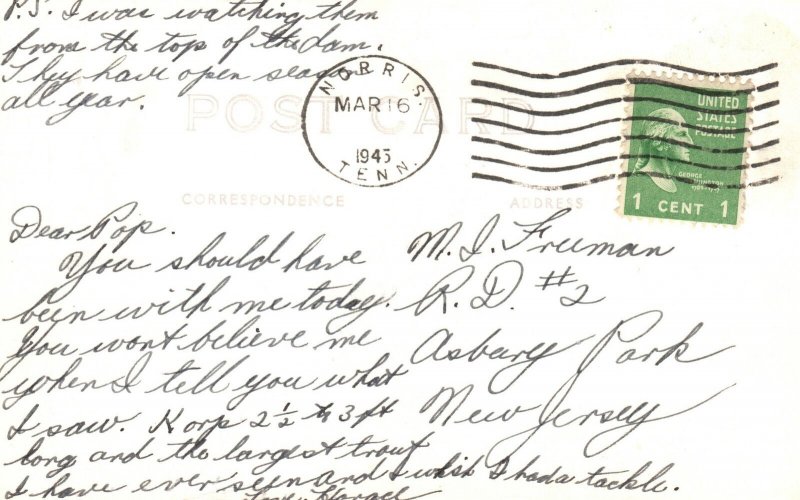 P.S. I was watching them
from the top of the dam.
They have open season
all year.
POST CARD
NORRIS.
MAR 16
1945
TENN.
UNITED
STATES
POSTAGE
GEORGE
WASHINGTON
1 CENT 1
CORRESPONDENCE
ADDRESS
Dear Pop.
You should have
been with me today.
You wont believe me
when I tell you what
I saw. Korp 2½ to 3 ft
long and the largest trout
I have ever seen and I wish I had a tackle.
Love, Horace
M. I. Freeman
R. D. #2
Asbury Park
New Jersey